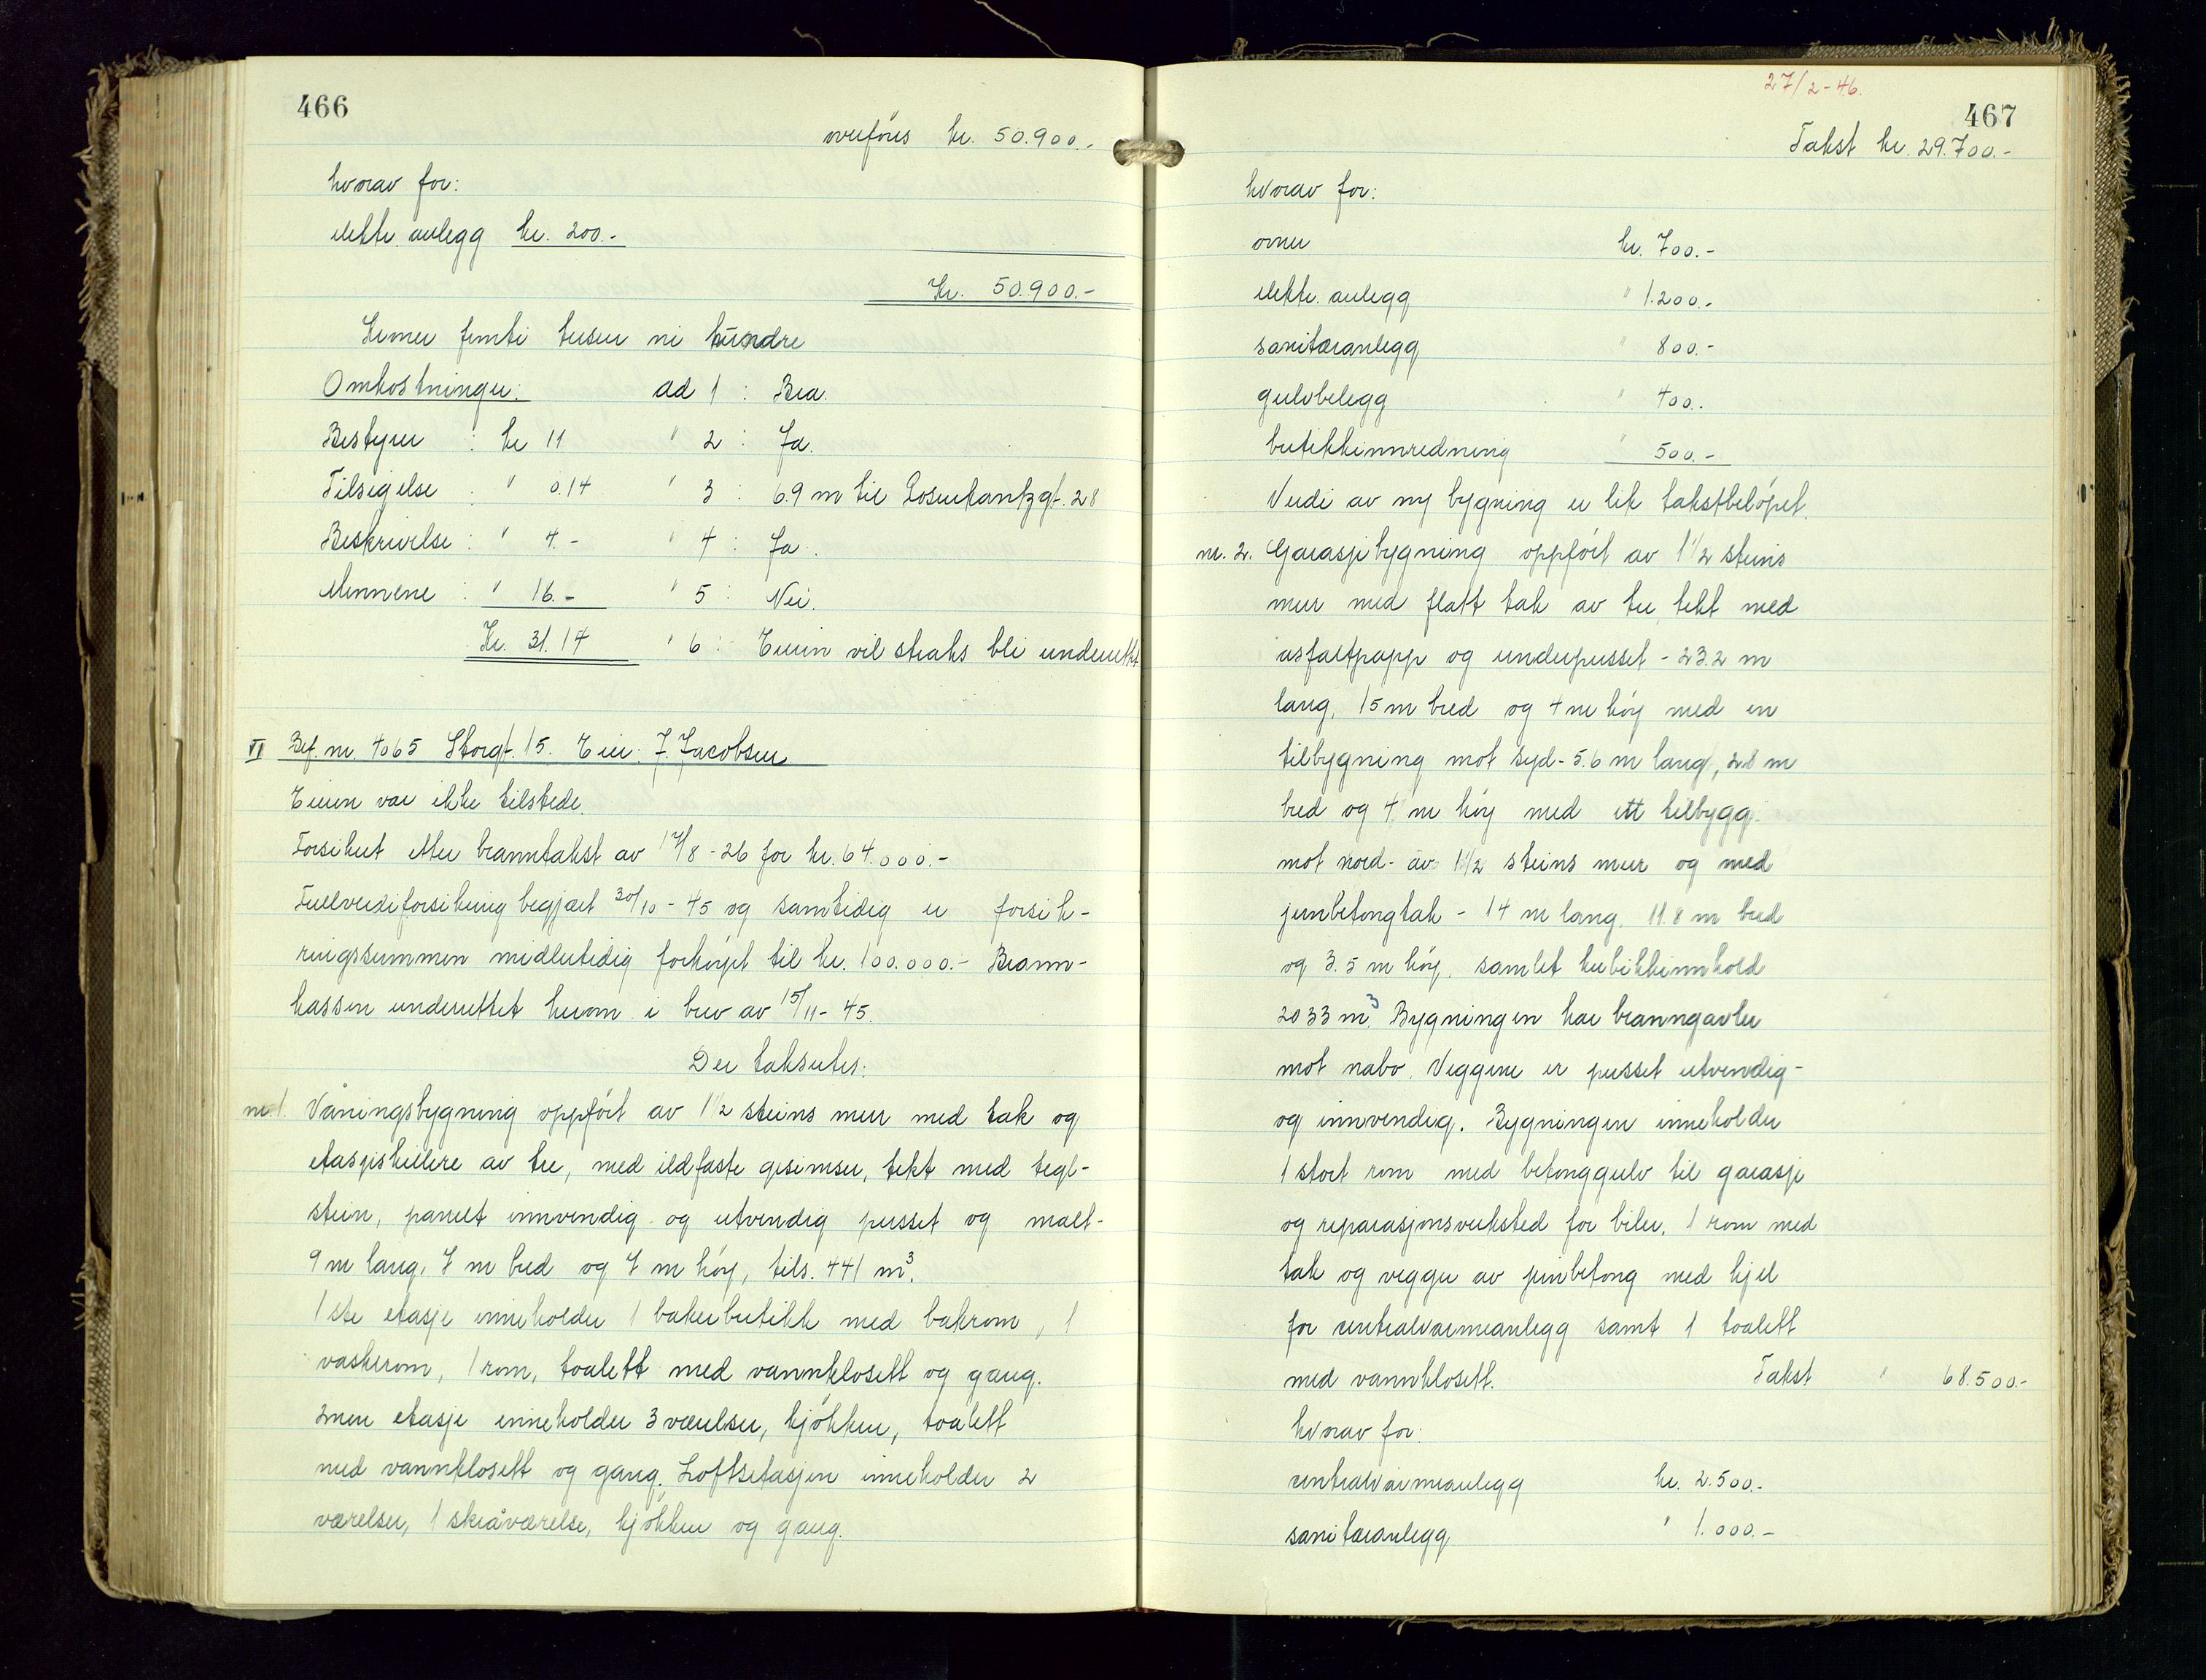 466
overføres kr. 50.900.-
hvorav for:
elektr. anlegg kr. 200.-
Kr. 50.900.-
Kroner femti tusen ni hundre
Omkostninger: ad 1 : Bra.
Bestyrer : kr 11 " 2 : Ja.
Tilsigelse : " 0.14 " 3 : 6.9 m til Rosenkrantzgt. 28
Beskrivelse : " 4.- " 4 : Ja.
Mennene : " 16.- " 5 : Nei.
Kr. 31.14 " 6 : Eieren vil straks bli underrettet
VI Brf. nr. 4065 Storgt. 15. Eier: J. Jacobsen
Eieren var ikke tilstede.
Forsikret etter branntakst av 17/8-26 for kr. 64.000.-
Fullverdiforsikring begjært 30/10-45 og samtidig er forsik-
ringssummen midlertidig forhøyet til kr. 100.000.- Brann-
kassen underrettet herom i brev av 15/11-45.
Der takseres:
nr. 1. Våningsbygning oppført av 1 1/2 steins mur med tak og
etasjeskillere av tre, med ildfaste gesimser, tekt med tegl-
stein, panelt innvendig og utvendig pusset og malt-
9 m lang, 7 m bred og 7 m høy, tils. 441 m3.
1ste etasje inneholder 1 bakerbutikk med bakrom, 1
vaskerom, 1 rom, toalett med vannklosett og gang.
2nen etasje inneholder 3 værelser, kjøkken, toalett
med vannklosett og gang. Loftsetasjen inneholder 2
værelser, 1 skråværelse, kjøkken og gang.
27/2-46.
467
Takst kr. 29.700.-
hvorav for:
ovner kr. 700.-
elektr. anlegg " 1.200.-
sanitæranlegg " 800.-
gulvbelegg " 400.-
butikkinnredning " 500.-
Verdi av ny bygning er lik takstbeløpet.
nr. 2. Garasjebygning oppført av 1 1/2 steins
mur med flatt tak av tre, tekt med
asfaltpapp og underpusset - 23.2 m
lang, 15 m bred og 4 m høy med en
tilbygning mot syd - 5.6 m lang, 2.8 m
bred og 4 m høy med ett tilbygg
mot nord - av 1 1/2 steins mur og med
jernbetongtak - 14 m lang, 11.8 m bred
og 3.5 m høy, samlet kubikkinnhold
2033 m3. Bygningen har branngavler
mot nabo. Veggene er pusset utvendig-
og innvendig. Bygningen inneholder
1 stort rom med betonggulv til garasje
og reparasjonsverksted for biler, 1 rom med
tak og vegger av jernbetong med kjel
for sentralvarmeanlegg samt 1 toalett
med vannklosett. Takst " 68.500.-
hvorav for:
sentralvarmeanlegg kr. 2.500.-
sanitæranlegg " 1.000.-